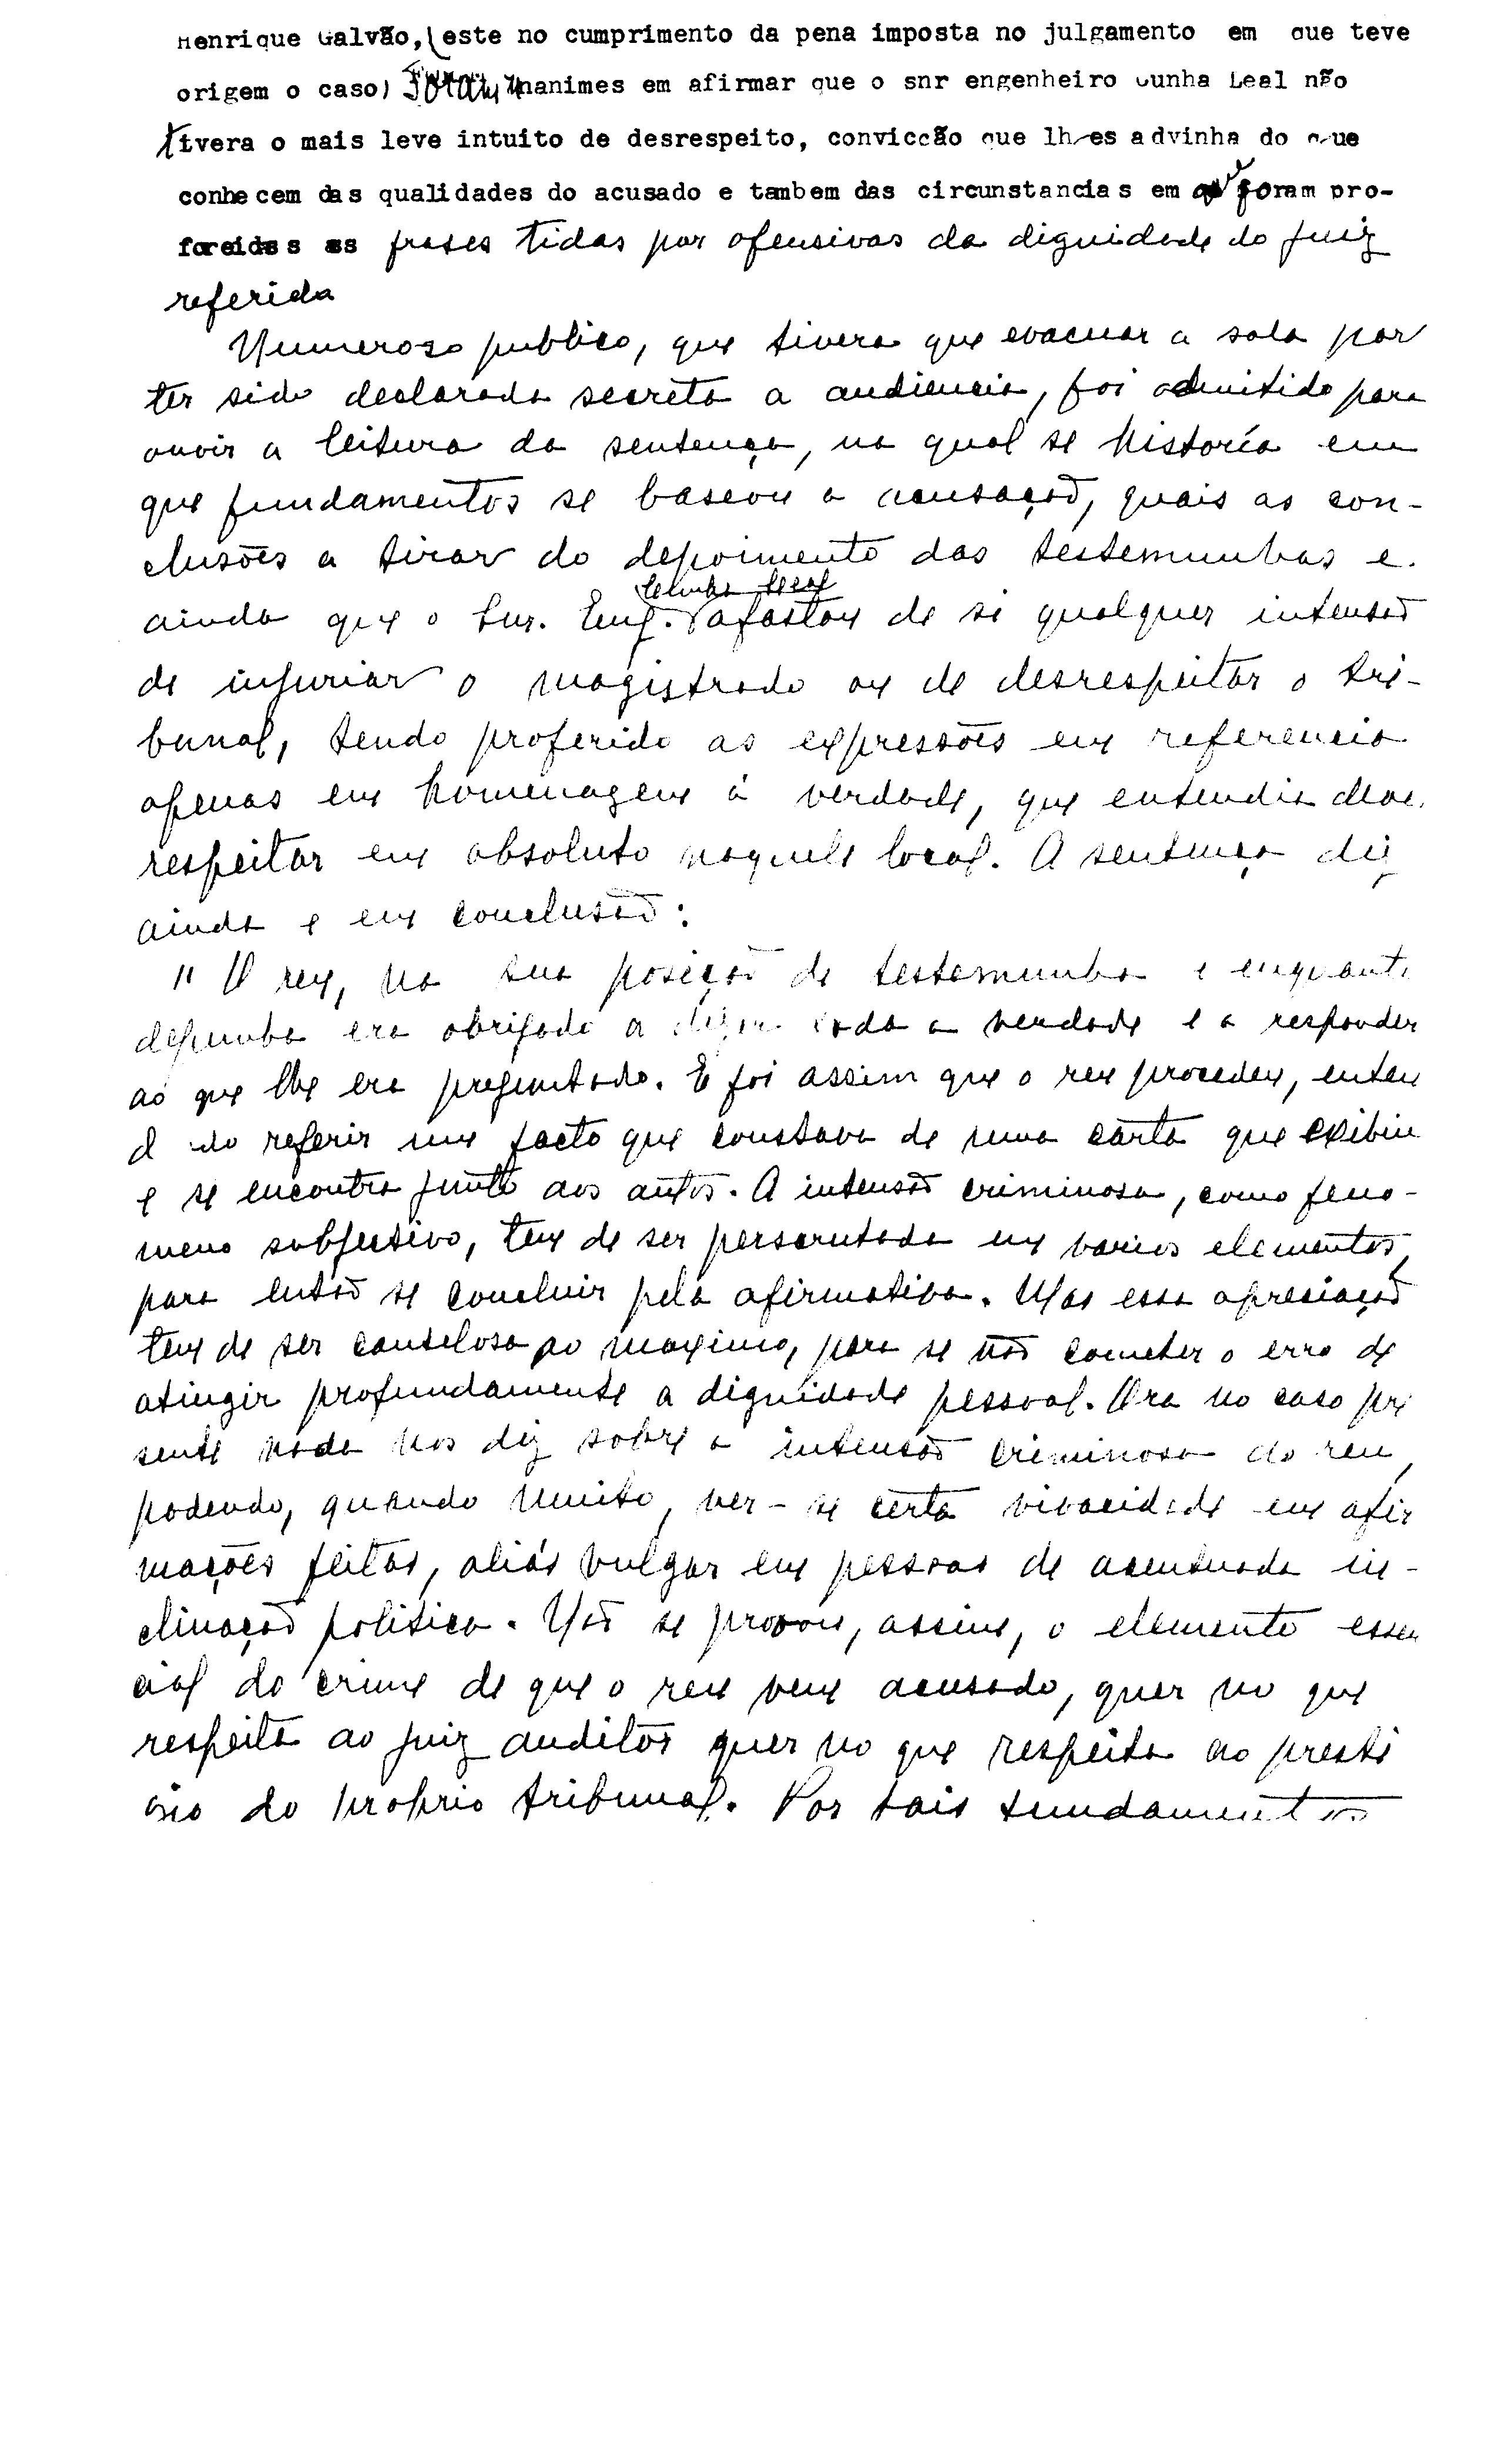 Henrique Galvão, (este no cumprimento da pena imposta no julgamento em que teve
origem o caso) foram unanimes em afirmar que o snr engenheiro Cunha Leal não
tivera o mais leve intuito de desrespeito, convicção que lhes advinha do que
conhecem das qualidades do acusado e tambem das circunstancias em que foram pro-
foreidas as frases tidas por ofensivas da dignidade do juiz
referida
Numeroso publico, que tivera que evacuar a sala por
ter sido declarada secreta a audiencia, foi admitido para
ouvir a leitura da sentença, na qual se historía em
que fundamentos se baseou a acusação, quais as con-
clusões a tirar do depoimento das testemunhas e
ainda que o Snr. Eng. Cunha Leal afastou de si qualquer intensão
de injuriar o magistrado ou de desrespeitar o tri-
bunal, tendo proferido as expressões em referencia
apenas em homenagem á verdade, que entendia dever
respeitar em absoluto naquele local. A sentença diz
ainda e em conclusão:
"O reu, na sua posição de testemunha e enquanto
depunha era obrigado a dizer toda a verdade e a responder
ao que lhe era preguntado. E foi assim que o reu procedeu, enten
d ndo referir um facto que constava de uma carta que exibiu
e se encontra junto aos autos. A intensão criminosa, como feno-
meno subjectivo, tem de ser perscrutada em varios elementos,
para então se concluir pela afirmativa. Mas essa apreciação
tem de ser cautelosa ao maximo, para se não cometer o erro de
atingir profundamente a dignidade pessoal. Ora no caso pre
sente nada nos diz sobre a intensão criminosa do reu,
podendo, quando muito, ver-se certa vivacidade em afir
mações feitas, aliás vulgar em pessoas de acentuada in-
clinação politica. Não se provou, assim, o elemento essen
cial do crime de que o reu vem acusado, quer no que
respeita ao juiz auditor quer no que respeita ao presti
gio do proprio tribunal. Por tais fundamentos